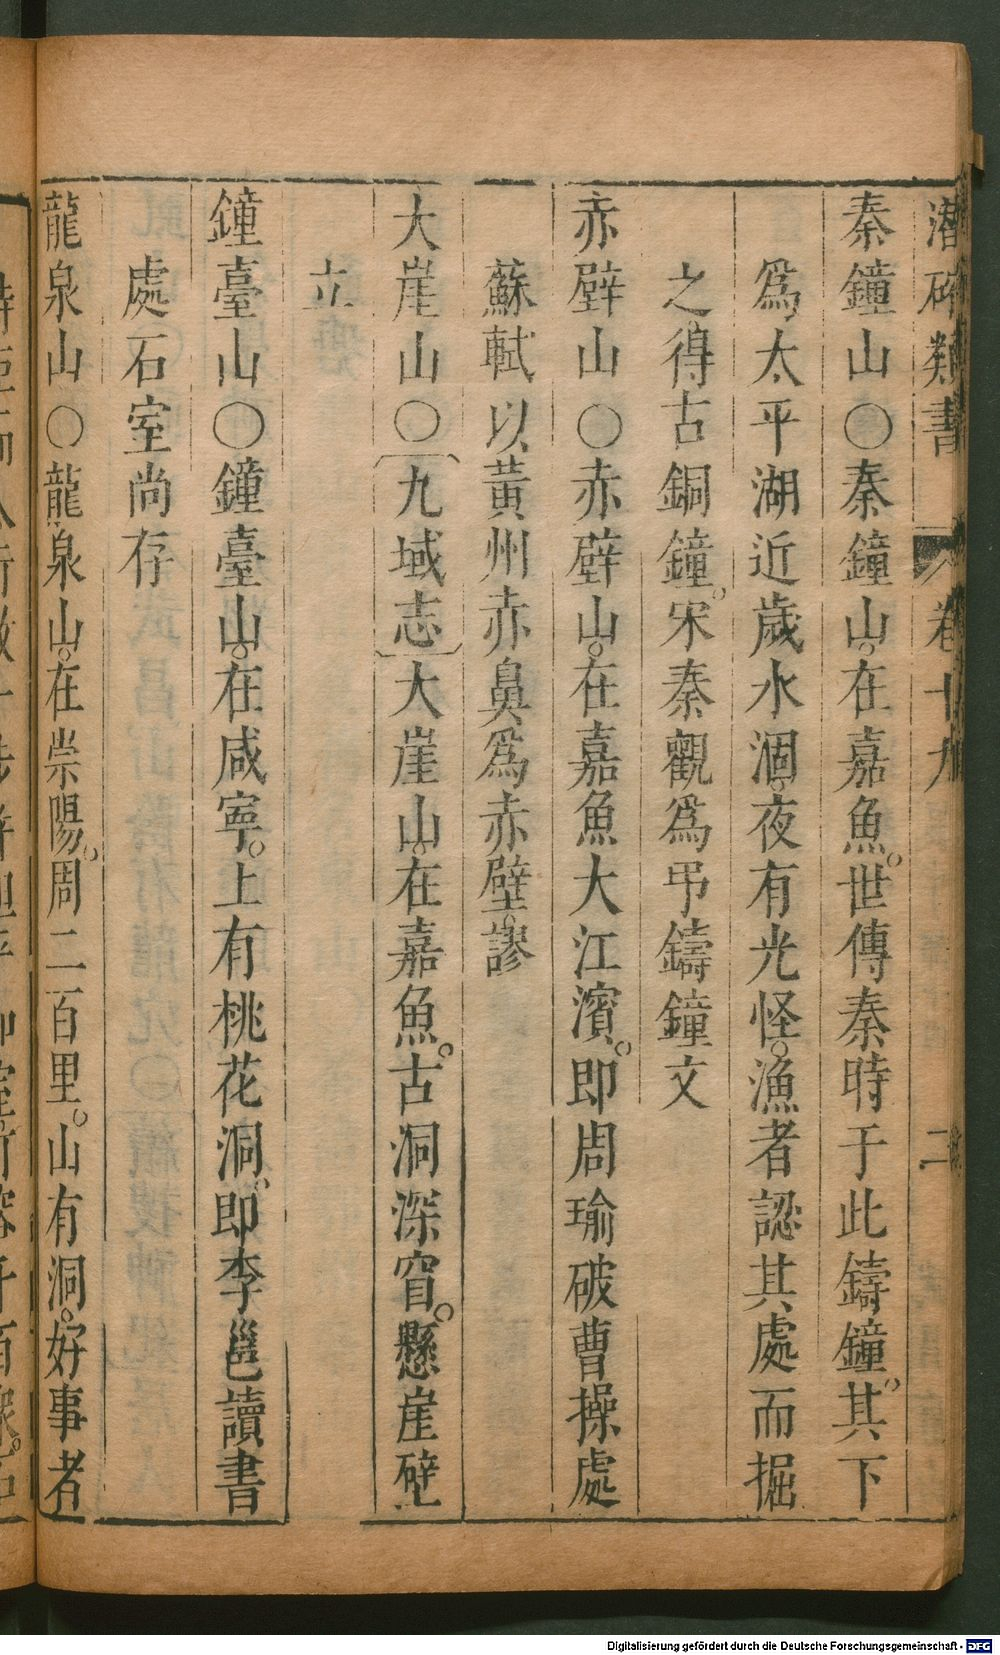 潛確類書 卷十九 二
秦鐘山○秦鐘山。在嘉魚。世傳秦時于此鑄鐘。其下
爲太平湖近歲水涸。夜有光怪。漁者認其處而掘
之得古銅鐘。宋秦觀爲弔鑄鐘文
赤壁山○赤壁山。在嘉魚大江濱。即周瑜破曹操處
蘇軾以黃州赤鼻爲赤壁。謬
大崖山○九域志大崖山。在嘉魚。古洞深窅。懸崖壁
立
鐘臺山○鐘臺山。在咸寧。上有桃花洞。即李邕讀書
處石室尚存
龍泉山○龍泉山。在崇陽。周二百里。山有洞。好事者
Digitalisierung gefördert durch die Deutsche Forschungsgemeinschaft - DFG